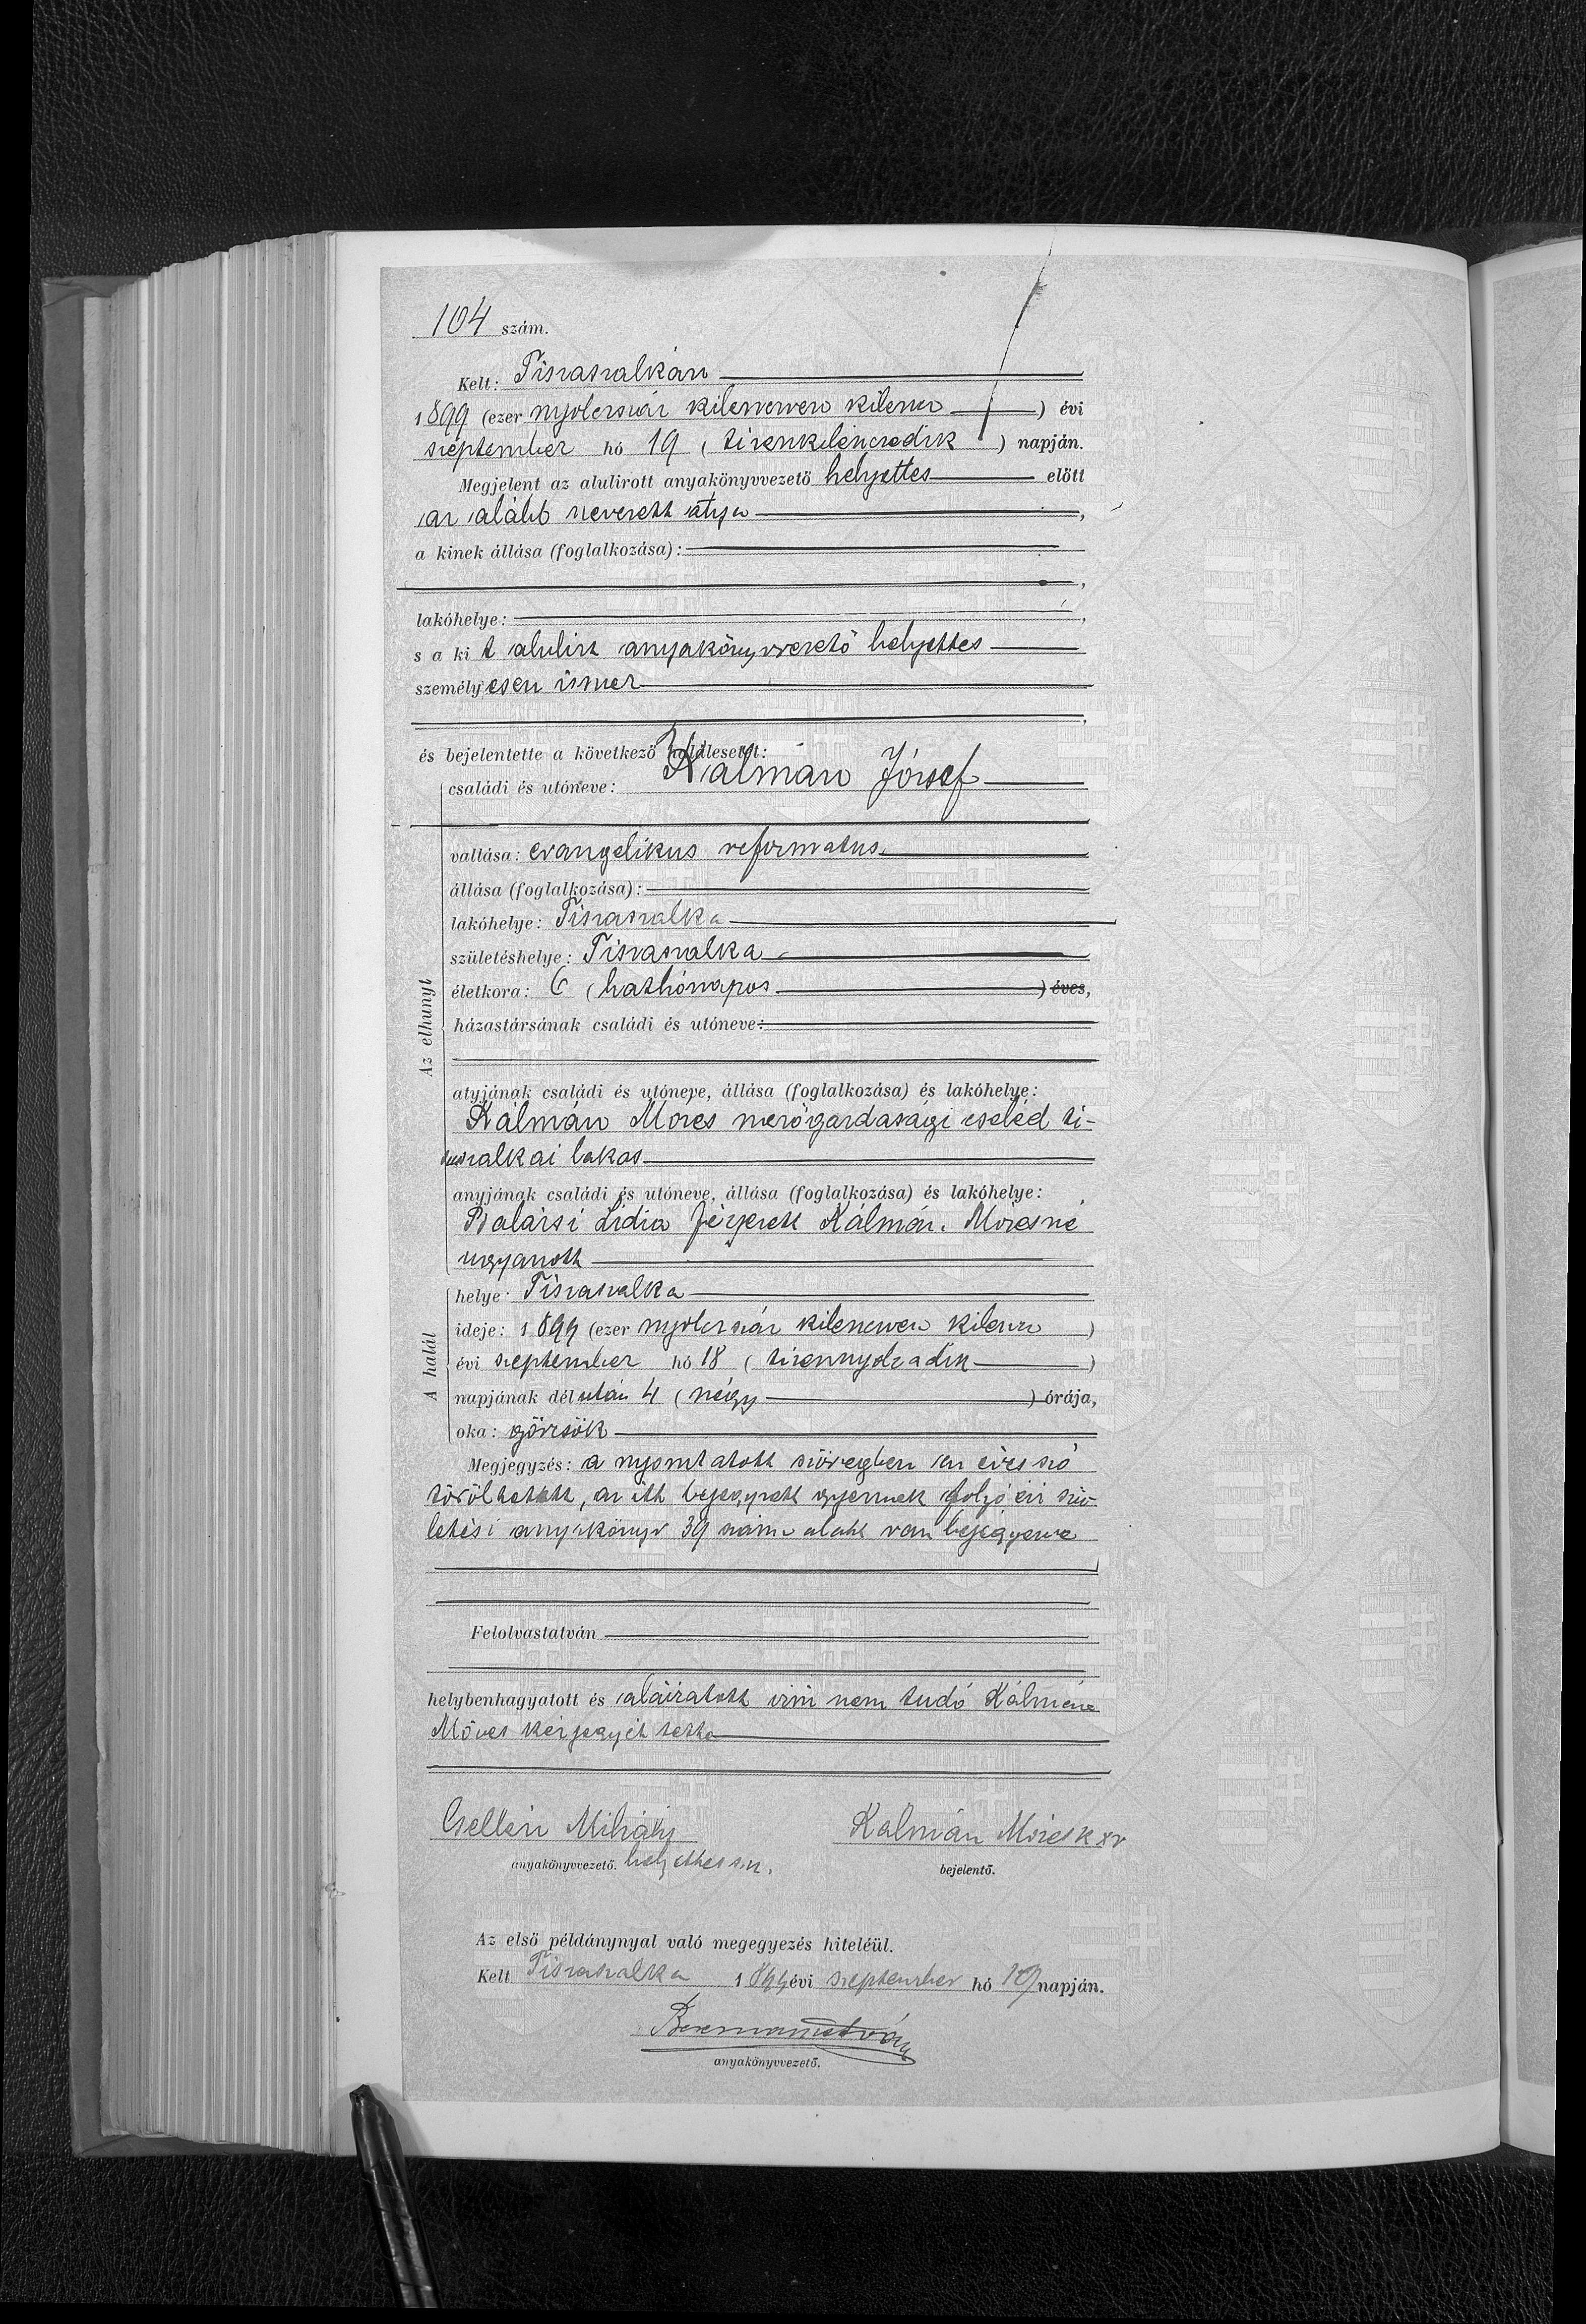 104 szám.
Kelt: Tiszaszalkán
1899 (ezer nyolcszáz kilencven kilenc) évi
szeptember hó 19 (tizenkilencedik) napján.
Megjelent az alulirott anyakönyvvezető helyettes előtt
az alább nevezett atya,
a kinek állása (foglalkozása):
lakóhelye:
s a kit alulirt anyakönyvvezető helyettes
személyesen ismer
és bejelentette a következő halálesetet:
Az elhunyt
családi és utóneve: Kálmán József
vallása: evangelikus reformatus
állása (foglalkozása):
lakóhelye: Tiszaszalka
születéshelye: Tiszaszalka
életkora: 6 (hathónapos) éves,
házastársának családi és utóneve:
atyjának családi és utóneve, állása (foglalkozása) és lakóhelye:
Kálmán Mózes mezőgazdasági cseléd ti-
szaszalkai lakos
anyjának családi és utóneve, állása (foglalkozása) és lakóhelye:
Balázsi Lidia férjezett Kálmán Mózesné
ugyanott
A halál
helye: Tiszaszalka
ideje: 1899 (ezer nyolcszáz kilencven kilenc)
évi szeptember hó 18 (tizennyolcadik)
napjának délután 4 (négy) órája,
oka: görcsök
Megjegyzés: a nyomtatott szövegben az éves szó
töröltetett, az itt bejegyzett gyermek folyó évi szü-
letési anyakönyv 39 száma alatt van bejegyezve
Felolvastatván
helybenhagyatott és aláiratott irni nem tudó Kálmán
Mózes kézjegyét tette
Mihály
anyakönyvvezető. helyettes
Kálmán Mózes
bejelentő.
Az első példánynyal való megegyezés hiteléül.
Kelt Tiszaszalka 1899 évi szeptember hó 19 napján.
anyakönyvvezető.